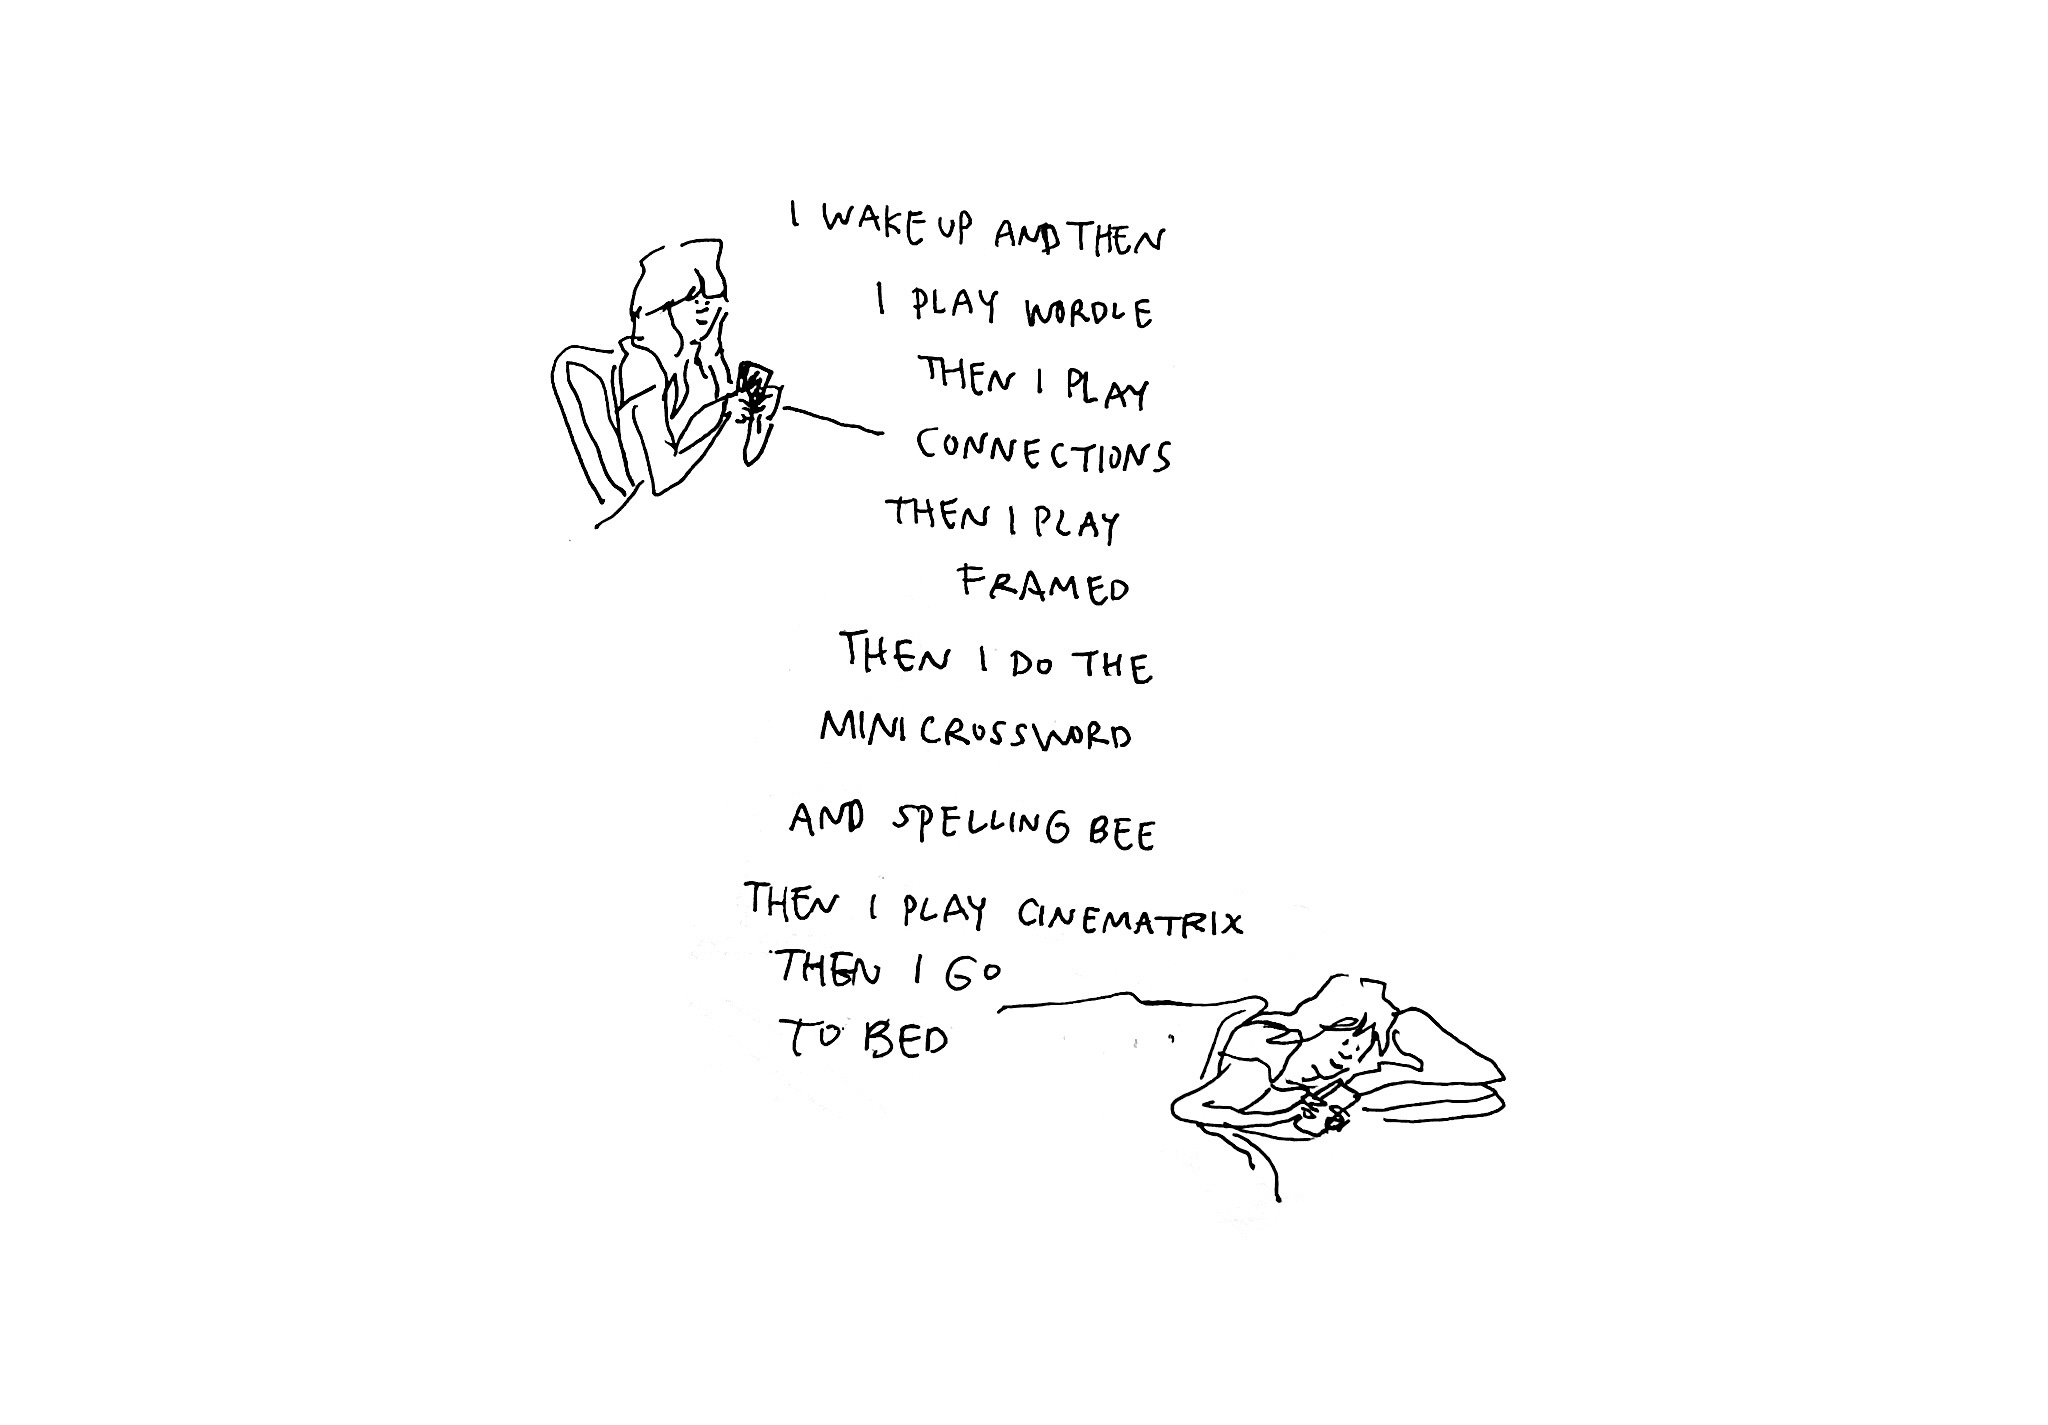 I WAKE UP AND THEN
I PLAY WORDLE
THEN I PLAY
CONNECTIONS
THEN I PLAY
FRAMED
THEN I DO THE
MINI CROSSWORD
AND SPELLING BEE
THEN I PLAY CINEMATRIX
THEN I GO
TO BED